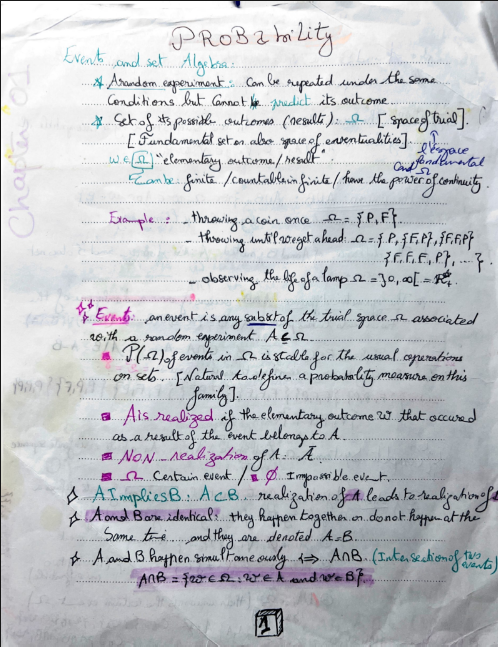 PROBability
Chapter 01
Events and set Algebra:
A random experiment: Can be repeated under the same
Conditions but Cannot predict its outcome.
Set of its possible outcomes (results): Ω [space of trial].
[Fundamental set or also space of eventualities]
l'espace
fondamental
Ω
w ∈ Ω "elementary outcome/result"
Ω can be finite / countable infinite / have the power of continuity.
Example: - throwing a coin once Ω = {P, F}.
- throwing until we get a head: Ω = {P, {F,P}, {F,F,P}
{F,F,F,P}, ...}
- observing the life of a lamp Ω = ]0, ∞[ =
Event: an event is any subset of the trial space Ω associated
with a random experiment A ⊆ Ω
P(Ω) of events in Ω is stable for the usual operations
on sets. [Natural to define a probability measure on this
family].
A is realized if the elementary outcome w that occured
as a result of the event belongs to A.
NON_realization of A: Ā
Ω Certain event / ∅ Impossible event.
A Implies B: A⊂B realization of A leads to realization of
A and B are identical: they happen together or do not happen at the
Same time and they are denoted A=B.
A and B happen simultaneously ⟺ A∩B. (Intersection of two
events)
A∩B = {w ∈ Ω : w ∈ A and w ∈ B}.
1